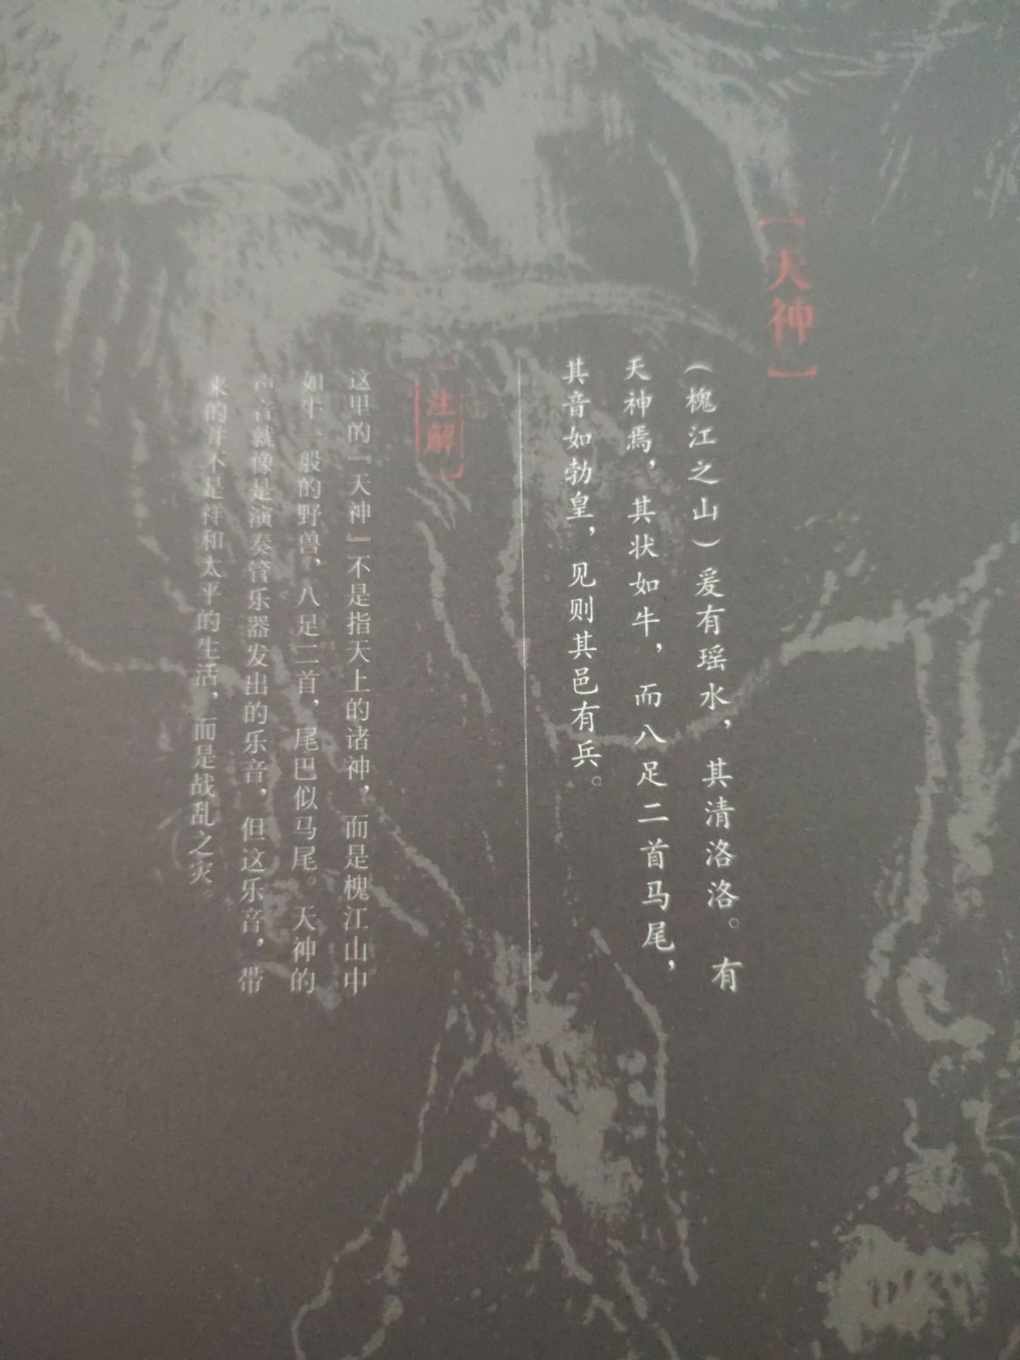 【天神】
（槐江之山）爰有瑶水，其清洛洛。有
天神焉，其状如牛，而八足二首马尾，
其音如勃皇，见则其邑有兵。
【注解】
这里的『天神』不是指天上的诸神，而是槐江山中
如牛一般的野兽，八足二首，尾巴似马尾。天神的
声音就像是演奏管乐器发出的乐音，但这乐音，带
来的并不是祥和太平的生活，而是战乱之灾